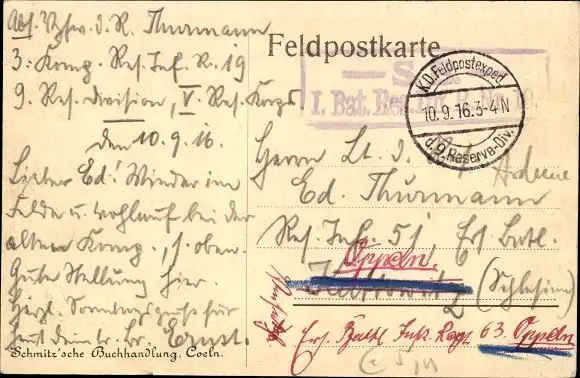 Abs. Vzfw. d. R. Thurmann
3. Komp. Res. Inf. R. 19
9. Res. Division, V. Res. Korps.
den 10.9.16.
Lieber Ed.! Wieder im
Felde u. wohlauf bei der
alten Komp., s. oben.
Gute Stellung hier.
Herzl. Sonntagsgrüße für
heut dein tr. Br. Ernst.
Schmitz'sche Buchhandlung, Coeln.
Feldpostkarte
I. Bat. Res.
K.D. Feldpostexped
10.9.16.3-4N
d. 9. Reserve-Div.
Herrn Lt. d.
Ed. Thurmann
Res. Inf. 51, Ers. Batl.
Oppeln.
(Schlesien)
Ers. Batl. Inf. Reg. 63. Oppeln